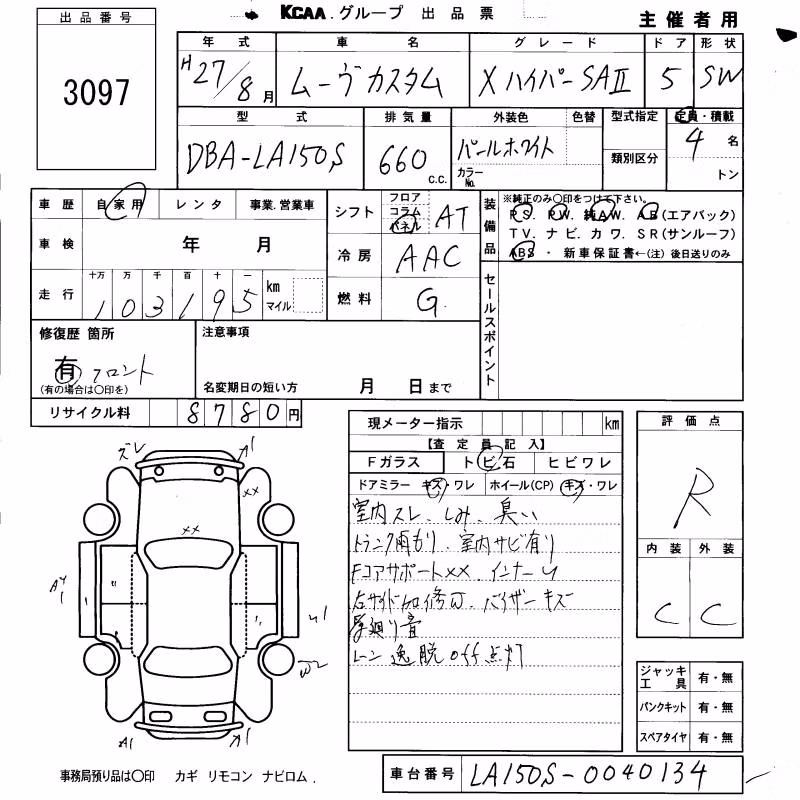 KCAA.グループ 出品票
主催者用
出品番号
3097
年式 車名 グレード ドア 形状
H27/8月 ムーヴカスタム XハイパーSAⅡ 5 SW
型式 排気量 外装色 色替 型式指定 定員・積載
DBA-LA150S 660 c.c. パールホワイト カラーNo. 類別区分 4名 トン
車歴 自家用 レンタ 事業.営業車
車検 年 月
走行 十万 万 千 百 十 一
103195 km マイル
シフト フロア コラム パネル AT
冷房 AAC
燃料 G
装備品 ※純正のみ〇印をつけて下さい。
P.S. P.W. 純A.W. A.B(エアバック)
T.V. ナビ.カワ.S.R(サンルーフ)
ABS・新車保証書←(注)後日送りのみ
セールスポイント
修復歴 箇所
有 フロント
(有の場合は〇印を)
注意事項
名変期日の短い方 月 日まで
リサイクル料 8780円
現メーター指示 km
【査定員記入】
Fガラス トビ石 ヒビワレ
ドアミラー キズ・ワレ ホイール(CP) キズ・ワレ
室内スレ、しみ、臭い
トランク雨もり、室内サビ有り
FコアサポートXX、インナーU
右サイド 修 バイザーキズ
廻り音
レーン逸脱off点灯
評価点
R
内装 外装
C C
ズレ A1
XX
XX
A1
W2
A1 A1
ジャッキ工具 有・無
パンクキット 有・無
スペアタイヤ 有・無
事務局預り品は〇印 カギ リモコン ナビロム.
車台番号 LA150S-0040134